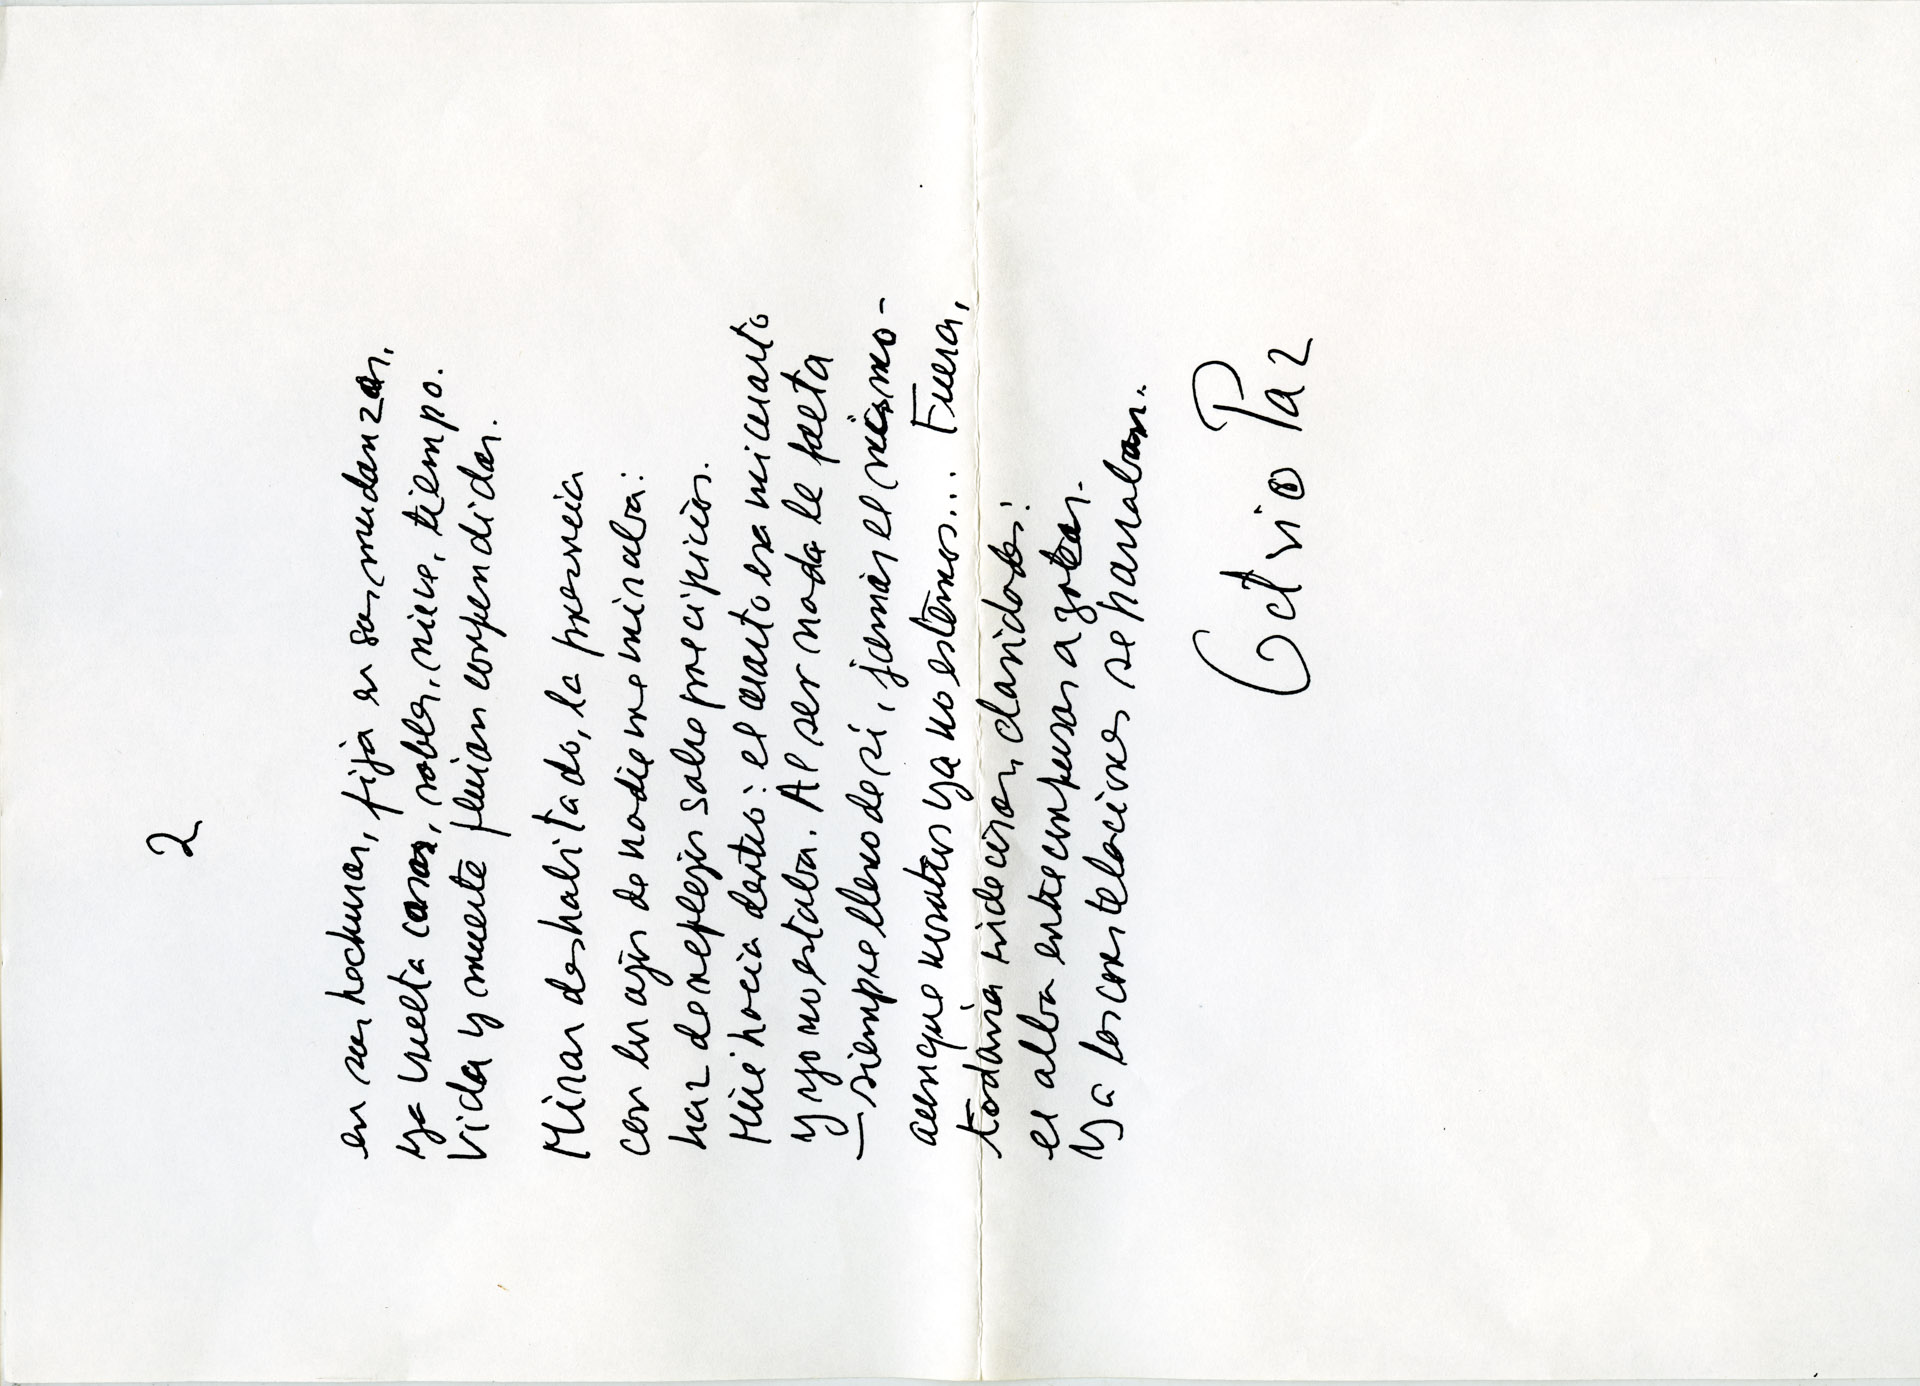 2
en sus hechuras, fija en sus mudanzas,
ya vuelta casas, robles, nieve, tiempo.
Vida y muerte fluían confundidas.
Mirar deshabitado, la presencia
con los ojos de nadie me miraba:
haz de reflejos sobre precipicios.
Miré hacia dentro: el cuarto era mi cuarto
y yo no estaba. Al ser nada le falta
—siempre lleno de sí, jamás el mismo—
aunque nosotros ya no estemos... Fuera,
todavía indecisas, claridades:
el alba entre confusas azoteas.
Ya las constelaciones se borraban.
Octavio Paz